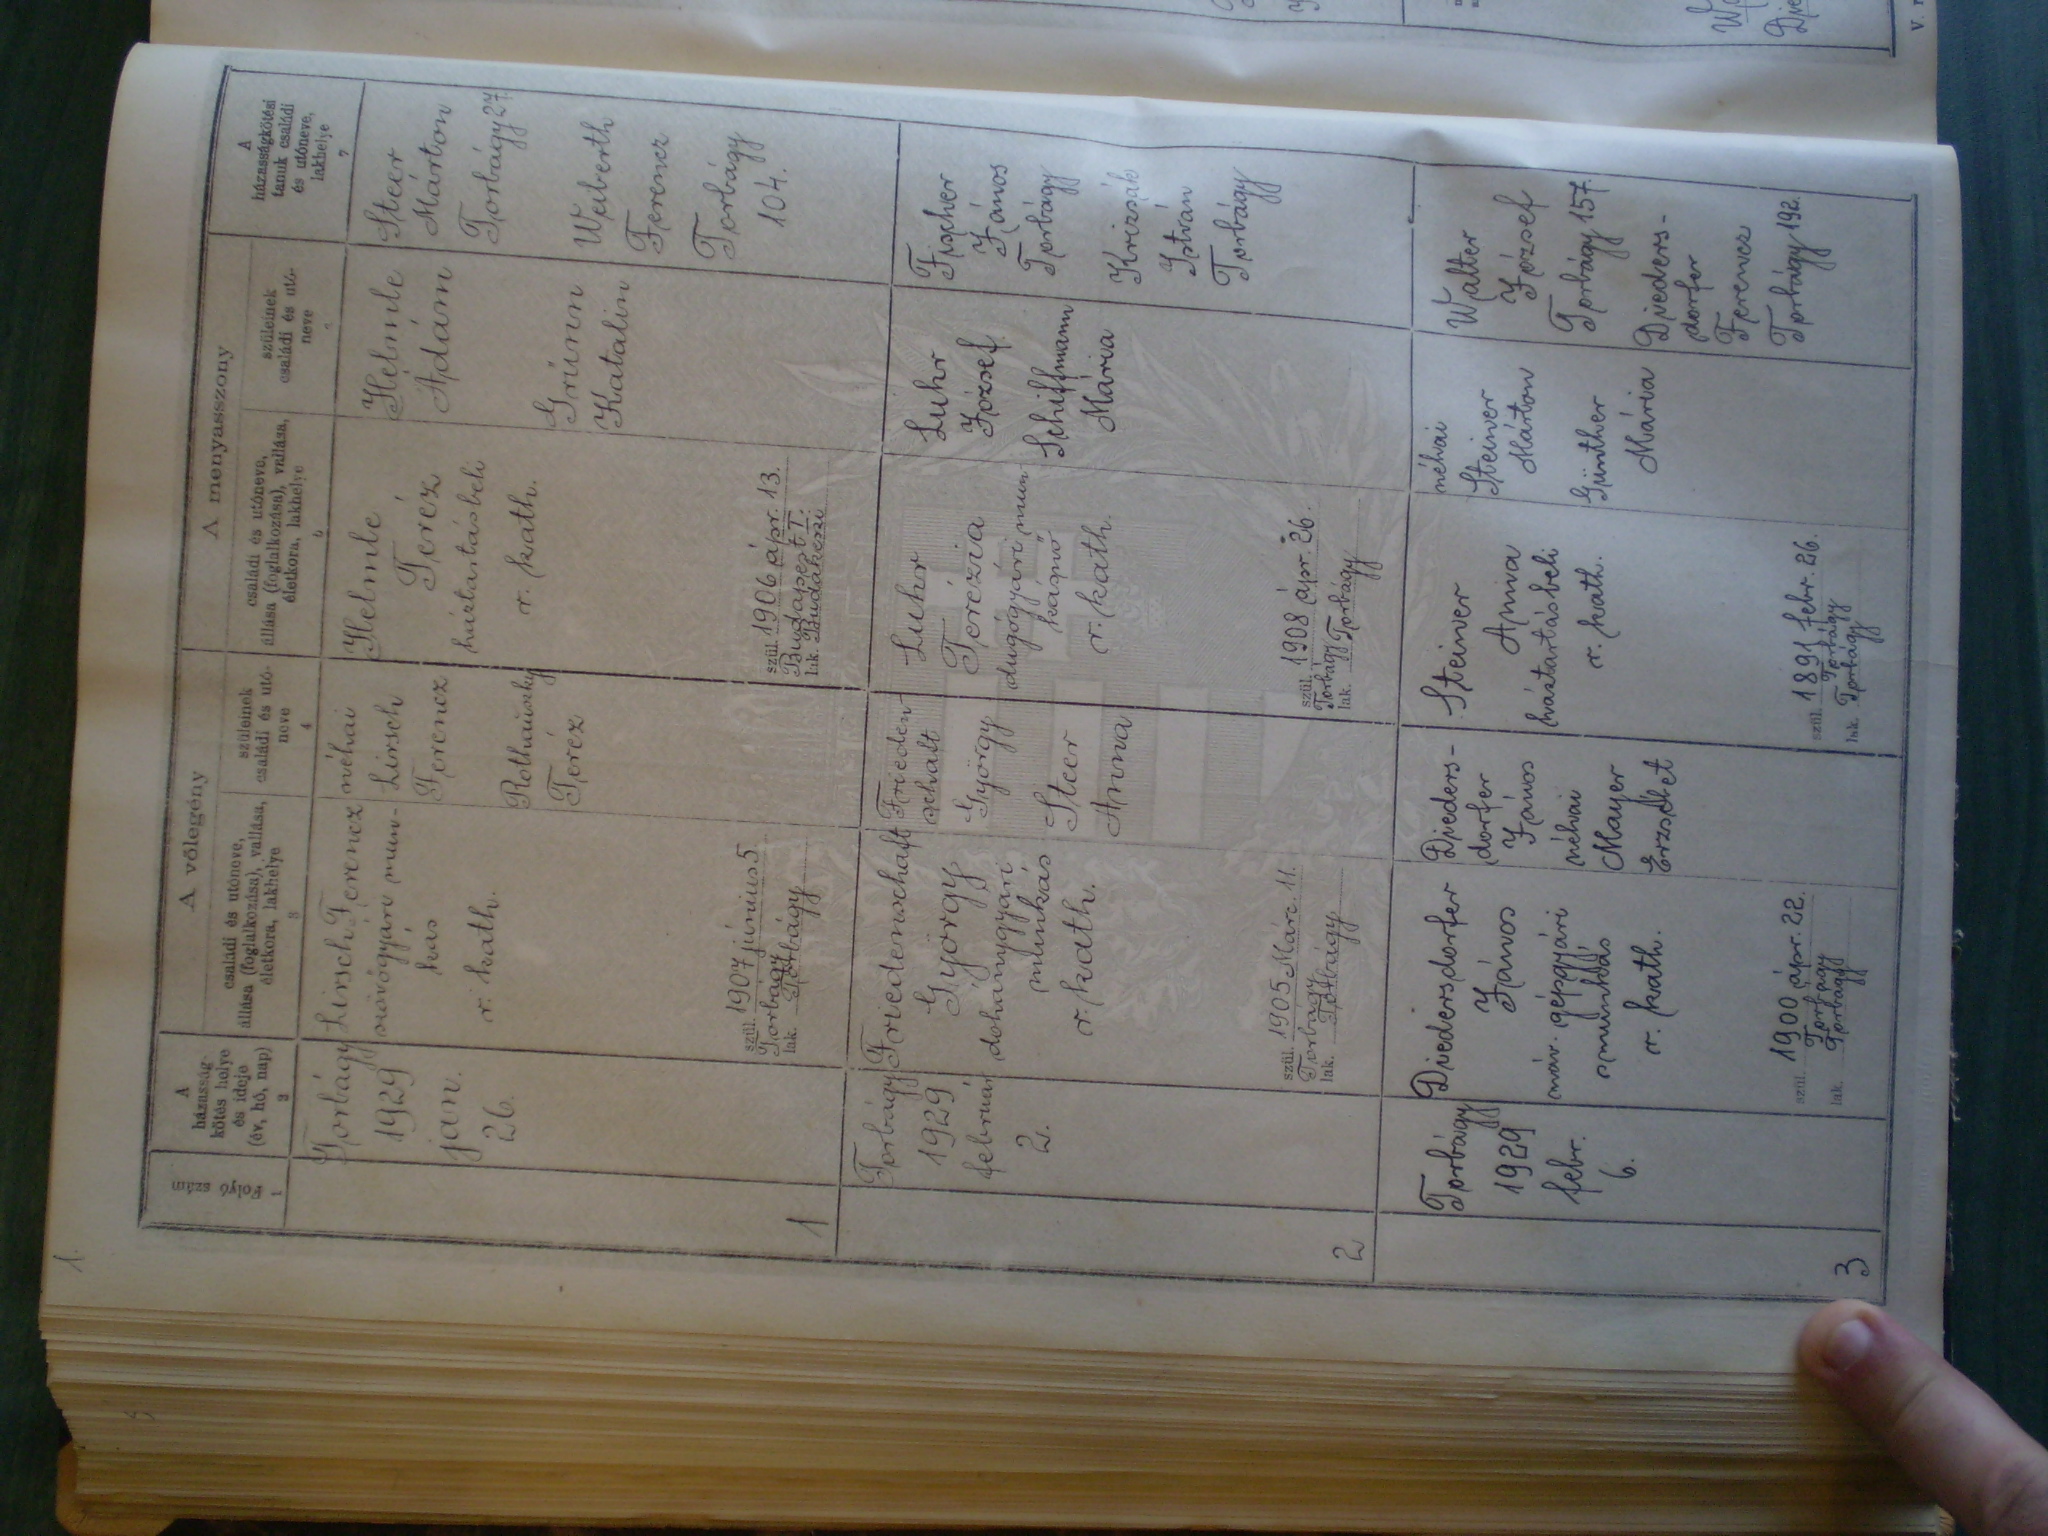 1.
A házasság-
kötés helye
és ideje
(év, hó, nap)
2
A vőlegény
családi és utóneve,
állása (foglalkozása), vallása,
életkora, lakhelye
3
szüleinek
családi és utó-
neve
4
A menyasszony
családi és utóneve,
állása (foglalkozása), vallása,
életkora, lakhelye
5
szüleinek
családi és utó-
neve
A
házasságkötési
tanuk családi
és utóneve,
lakhelye
7
1
Torbágy
1929
jan.
26.
Lirsch Ferencz
mun-
kás
r. kath.
szül. 1907 június 5
Torbágy
lak. Torbágy
néhai
Lirsch
Ferencz
Teréz
Helmle
Teréz
háztartásbeli
r. kath.
szül. 1906 ápr. 13.
Budapest I.
lak. Budakeszi
Hélmle
Ádám
Grünn
Katalin
Steer
Márton
Torbágy 27.
Weberth
Ferencz
Torbágy
104.
2
Torbágy
1929
február
2.
Friedenschaft
György
dohánygyári
munkás
r. kath.
szül. 1905 Márc. 11.
Torbágy
lak. Torbágy
Frieden
schaft
György
Steer
Anna
Luhr
Terézia
dugógyári mun
kásnő
r. kath.
szül. 1908 ápr. 26.
Torbágy
lak. Torbágy
Luhr
József
Schiffmann
Mária
Fischer
János
Torbágy
Krizsák
István
Torbágy
3
Torbágy
1929
febr.
6.
Diedersdorfer
János
máv. gépgyári
munkás
r. kath.
szül. 1900 ápr. 22.
Torbágy
lak. Torbágy
Dieders-
dorfer
János
néhai
Mayer
Erzsébet
Steiner
Anna
háztartásbeli
r. kath.
szül. 1891 febr. 26.
Torbágy
lak. Torbágy
néhai
Steiner
Márton
Günther
Mária
Walter
József
Torbágy 157.
Dieders-
dorfer
Ferencz
Torbágy 192.